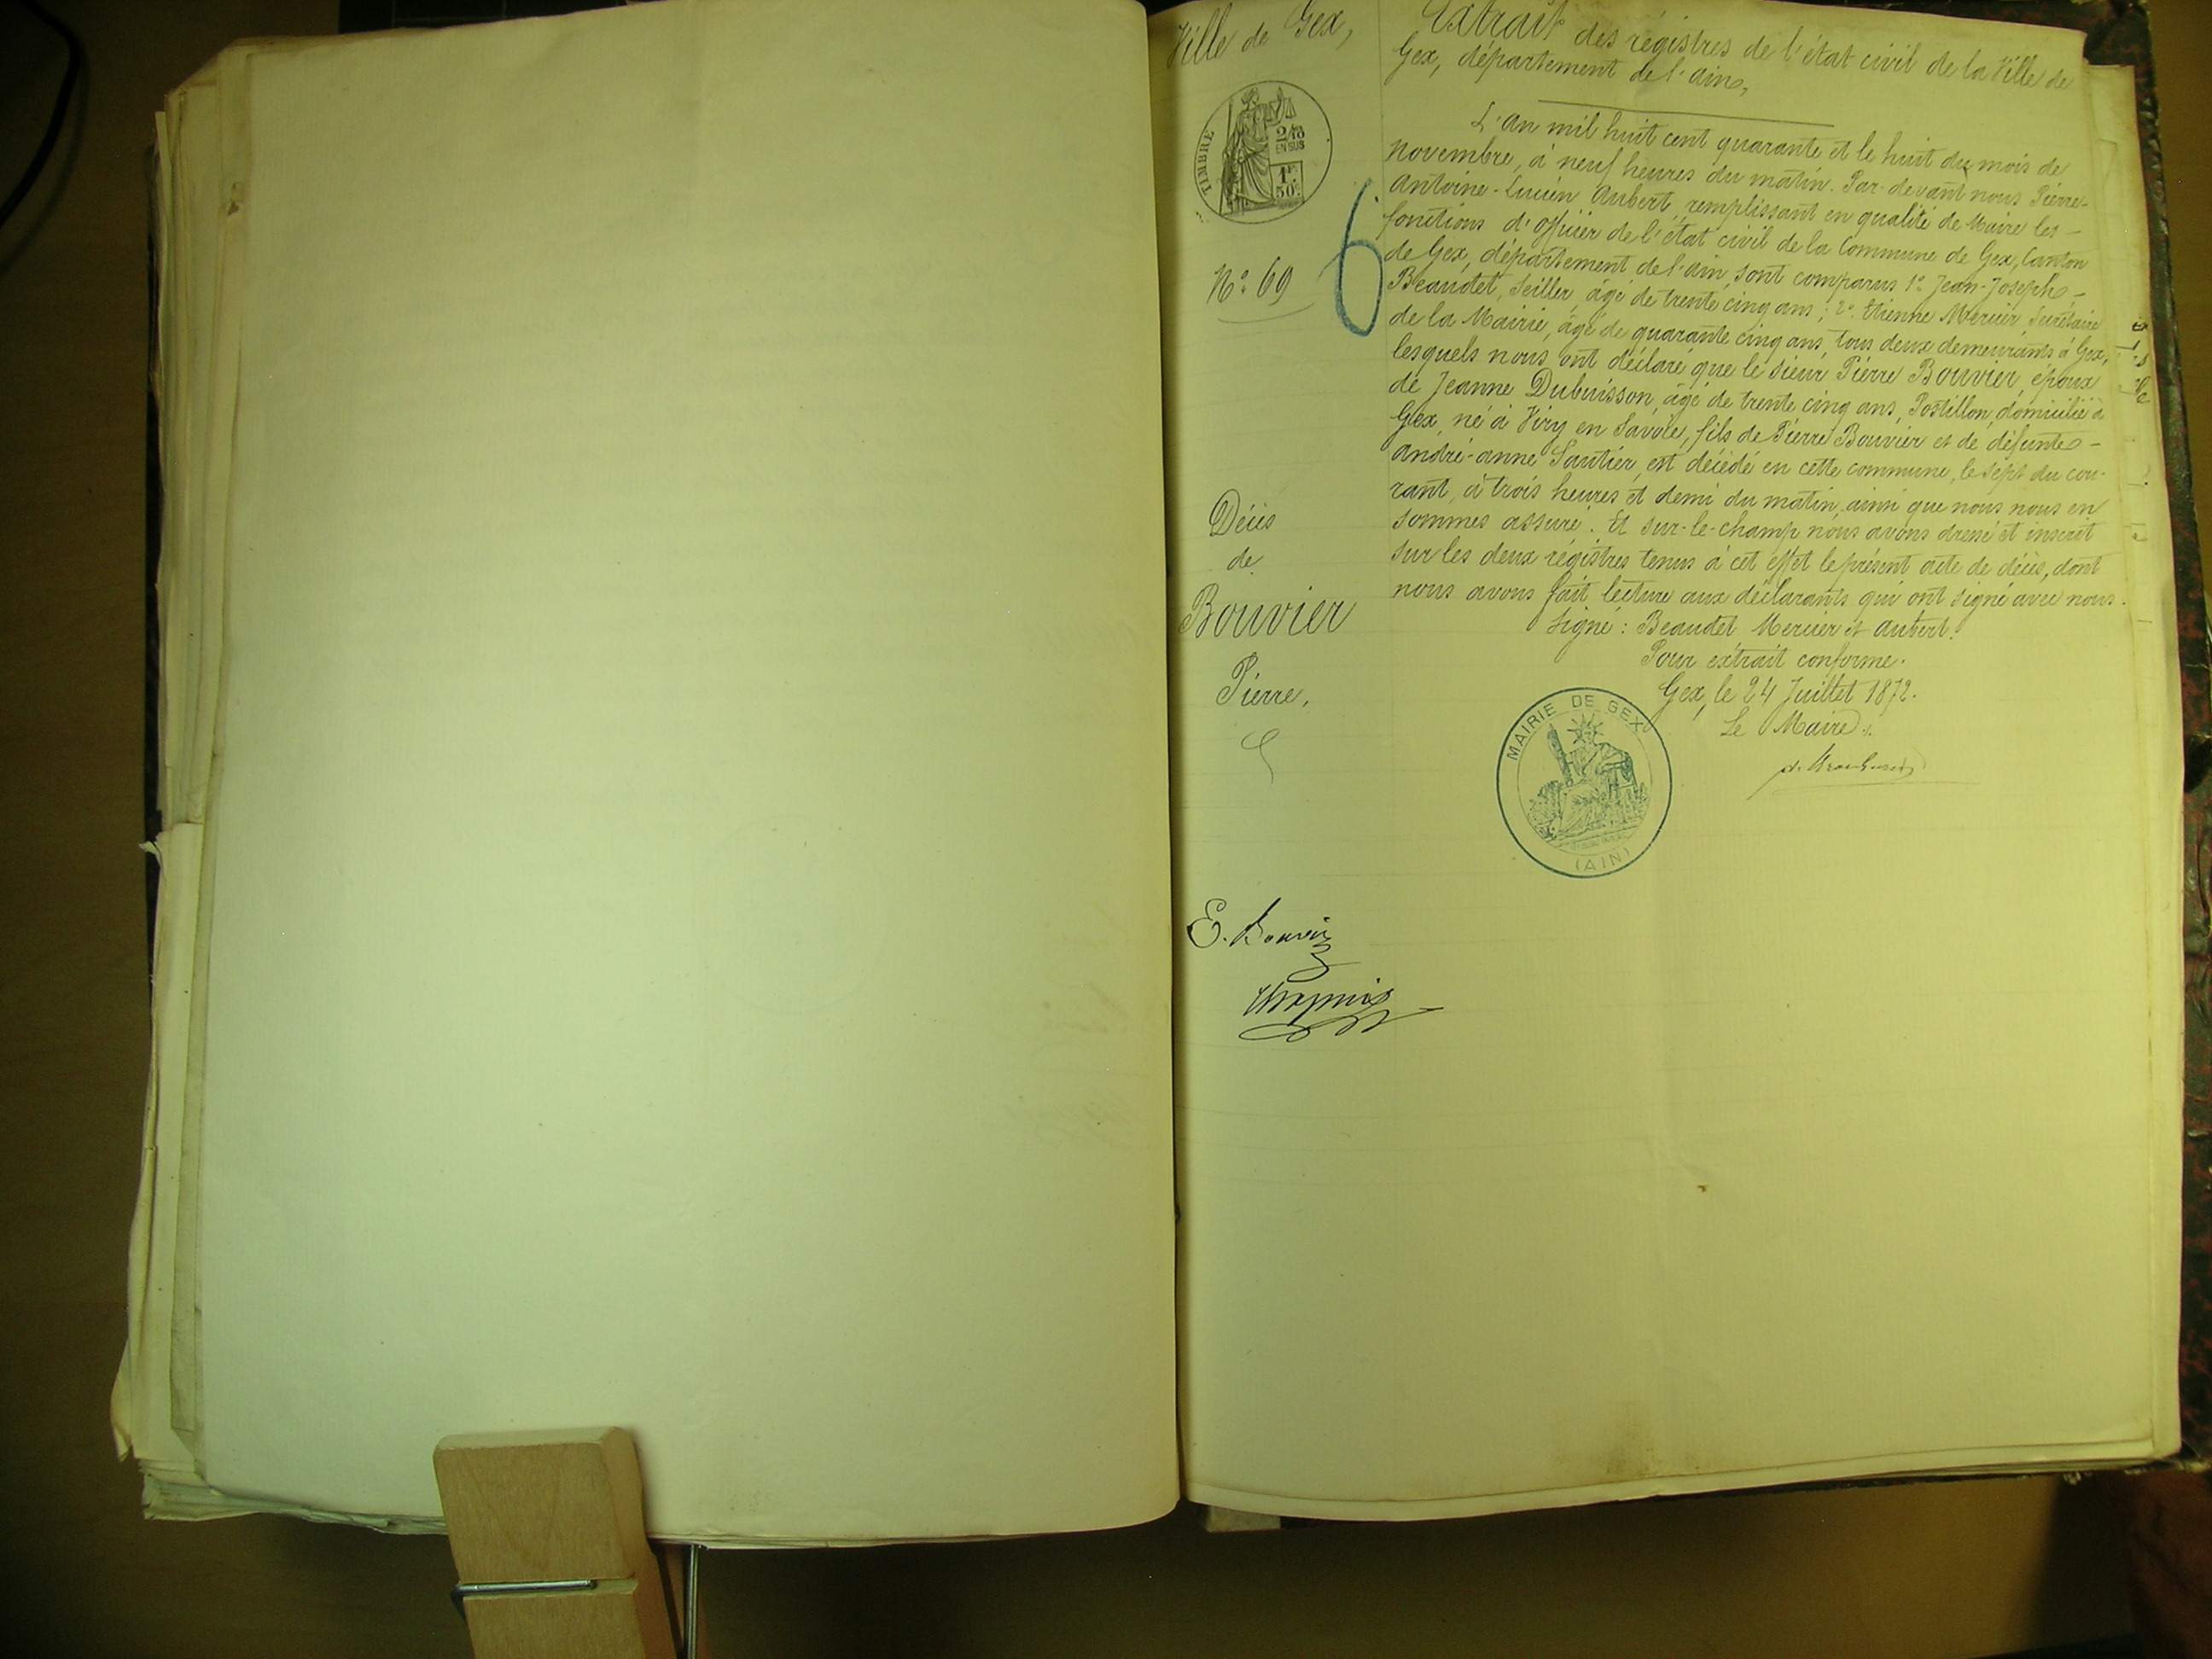 Ville de Gex,
TIMBRE
2/10
EN SUS
1F.
50c.
N° 69
6
Décès
de
Bouvier
Pierre,
E. Bouvier
Extrait des régistres de l'état civil de la Ville de
Gex, département de l'ain,
L'an mil huit cent quarante et le huit du mois de
novembre, à neuf heures du matin. Par-devant nous Pierre-
Antoine-Lucien Aubert, remplissant en qualité de Maire les
fonctions d'officier de l'état civil de la Commune de Gex, Canton
de Gex, département de l'ain, sont comparus 1° Jean-Joseph
Beaudet, Seiller, âgé de trente cinq ans; 2° Etienne Mercier Secrétaire
de la Mairie, âgé de quarante cinq ans, tous deux demeurants à Gex,
lesquels nous ont déclaré que le sieur Pierre Bouvier, époux
de Jeanne Dubuisson, âgé de trente cinq ans, Postillon, domicilié à
Gex, né à Viry en Savoie, fils de Pierre Bouvier et de défunte
andré-anne Sautier, est décédé en cette commune, le sept du cou-
rant, à trois heures et demi du matin, ainsi que nous nous en
sommes assuré. Et sur-le-champ nous avons dressé et inscrit
sur les deux régistres tenus à cet effet le présent acte de décès, dont
nous avons fait lecture aux déclarants qui ont signé avec nous.
Signé: Beaudet Mercier et Aubert.
Pour extrait conforme.
Gex, le 24 Juillet 1872.
Le Maire.
MAIRIE DE GEX
(AIN)